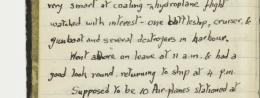 very smart at coaling & hydroplane flight
watched with interest - one battleship, cruiser, &
gunboat and several destroyers in harbour.
Went ashore on leave at 11 a.m. & had a
good look round, returning to ship at 4 p.m.
Supposed to be 10 Air-planes stationed at